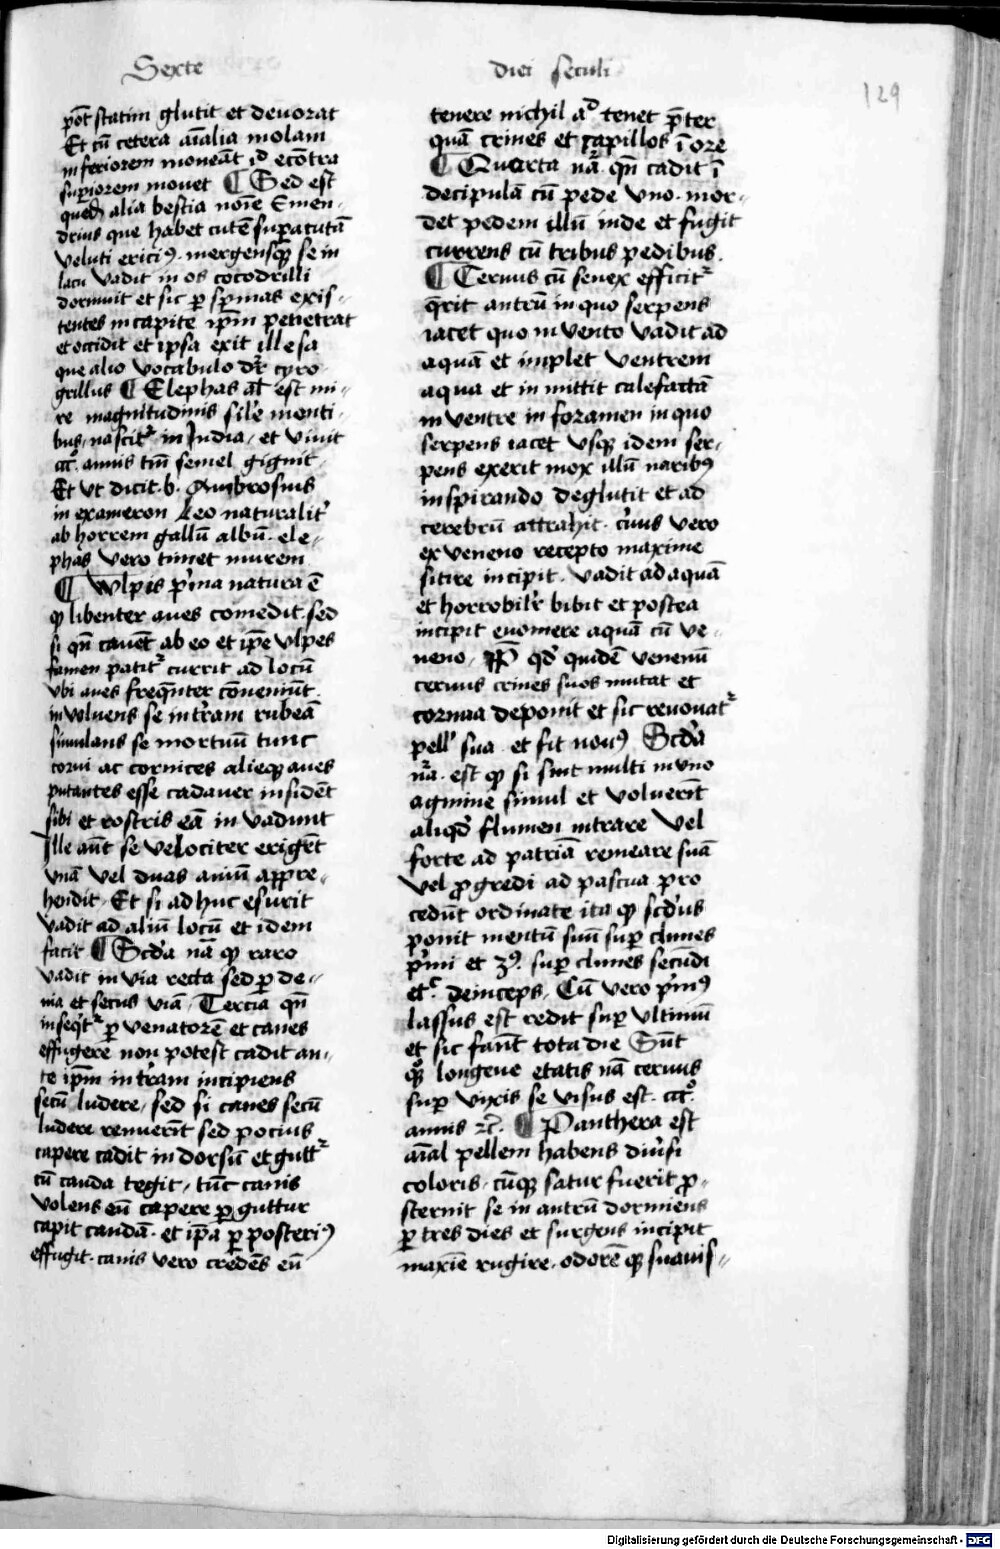 Sexte diei seculi
129
pōt statim glutit et deuorat
Et cū cetera aīalia molam
inferiorem moueāt id ecōtra
supiorem mouet ¶ Sed est
quedā alia bestia noīe Emen-
drius que habet cutē
veluti ericiꝰ. mergensqꝫ se in
lacu vadit in os cocodrilli
dormit et sic ꝑ spinas exis-
tentes in capite ipm̄ penetrat
et occidit et ipsa exit illesa
que alio vocabulo dr̄ cyro-
grillus ¶ Elephas aūt est mi-
re magnitudinis sil'e monti-
bus, nascitᷣ in India, et viuit
ccc̊. annis tn̄ semel gignit
Et vt dicit. b. Ambrosius
in exameron Leo naturalit'
abhorrem gallū albū. ele-
phas vero timet murem
¶ Wlpis p'ma natura ē
qꝫ libenter aues comedit. sed
si qn̄ cauēt ab eo et ip̄e vlpes
famen patitᷣ currit ad locū
vbi aues freqn̄ter cōueniūt.
inuoluens se in tr̄am rubeā
simulans se mortuū tunc
corui ac cornices alieqꝫ aues
putantes esse cadauer insidēt
sibi et rostris eā inuadunt
Ille aūt se velociter erigēt
vnā vel duas auiū appre-
hendit. Et si adhuc esurit
vadit ad aliū locū et idem
facit ¶ Scd'a nā qꝫ raro
vadit in via recta sed ꝑ de-
uia et secus viā. Tercia qn̄
inseq'tᷣ ꝑ venatorē et canes
effugere non potest cadit an-
te ipm̄ in tr̄am incipiens
secū ludere, sed si canes secū
ludere renuerīt sed pocius
capere cadit in dorsū et guttᷣ
cū cauda tegit, tūc canis
volens eū capere ꝑ guttur
capit caudā. et ip̄a ꝑ posteriꝰ
effugit. canis vero credēs eū
tenere nichil å tenet p̄ter
quā crines et capillos ī ore
¶ Quarta nᷓa. qn̄ cadit ī
decipulā cū pede vno. mor-
det pedem illū inde et fugit
currens cū tribus pedibus.
¶ Ceruus cū senex efficitᷣ
q̄rit antrū in quo serpens
iacet quo inuento vadit ad
aquā et implet ventrem
aqua et inmittit calefactā
in ventre in foramen in quo
serpens iacet vsqꝫ idem ser-
pens exerit mox illū naribꝰ
inspirando deglutit et ad
cerebrū attrahit. cuius vero
ex veneno recepto maxime
sitire incipit. vadit ad aquā
et horrobil'r bibit et postea
incipit euomere aquā cū ve-
neno. qd' quidē venenū
ceruus crines suos mutat et
cornua deponit et sic renouatᷣ
pell' sua. et fit nouꝰ Scd'a
nᷓa. est qꝫ si sint multi in vno
agmine simul et voluerīt
aliqd' flumen intrare vel
forte ad patriā remeare suā
vel progredi ad pascua pro
cedūt ordinate ita qꝫ scd'us
ponit mentū suū sup clunes
p'mi et 3ꝰ. sup clunes secūdi
etc̄. deinceps. Cū vero p'mꝰ
lassus est redit sup vltimū
et sic faūt tota die Sūt
longeue etatis nā ceruus
sup vixis se visus est. ccc̊.
annis ⁊c̄. ¶ Panthera est
aīal pellem habens diu'si
coloris. cūqꝫ satur fuerit pro-
sternit se in antrū dormiens
ꝑ tres dies et surgens incipit
maxīe rugire. odorē qꝫ suauis-
Digitalisierung gefördert durch die Deutsche Forschungsgemeinschaft - DFG